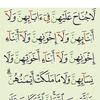 لَّا جُنَاحَ عَلَيْهِنَّ فِىٓ ءَابَآئِهِنَّ وَلَآ
أَبْنَآئِهِنَّ وَلَآ إِخْوَٰنِهِنَّ وَلَآ أَبْنَآءِ
إِخْوَٰنِهِنَّ وَلَآ أَبْنَآءِ أَخَوَٰتِهِنَّ وَلَا
نِسَآئِهِنَّ وَلَا مَا مَلَكَتْ أَيْمَٰنُهُنَّ